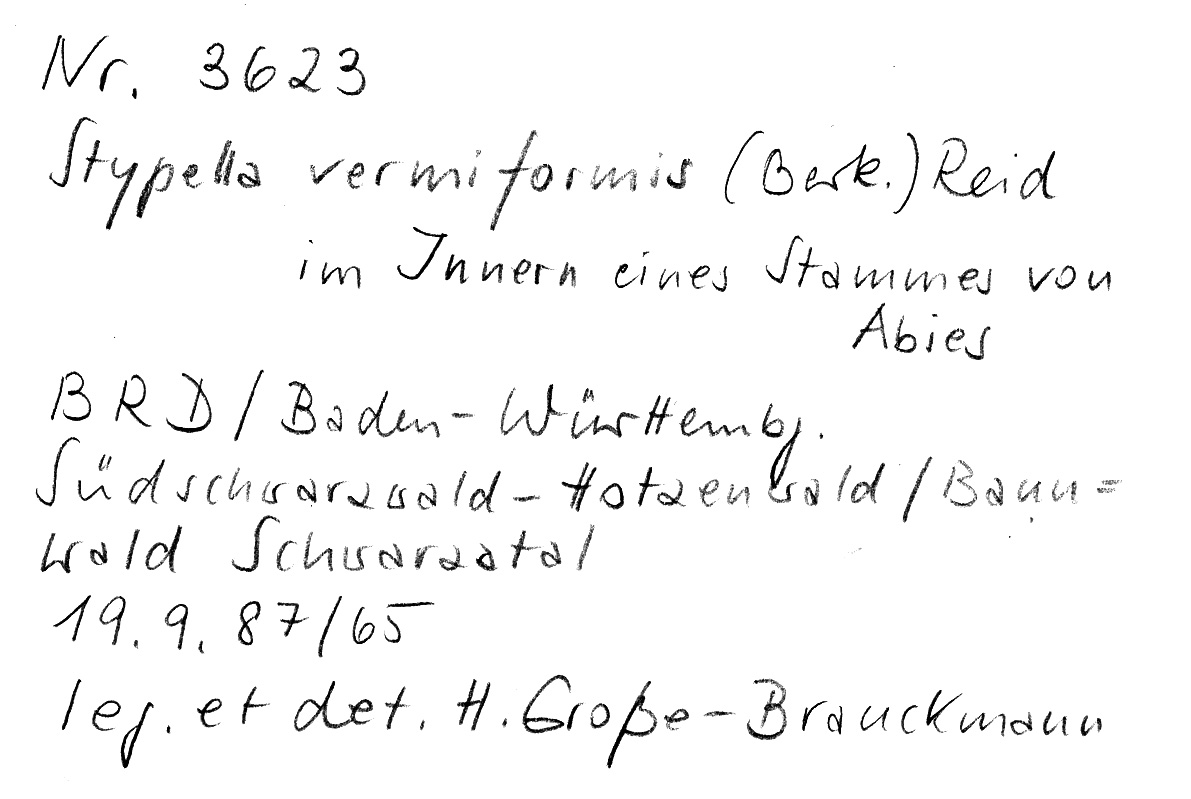 Nr. 3623
Stypella vermiformis (Berk.) Reid
im Innern eines Stammes von
Abies
BRD/Baden-Württembg.
Südschwarzwald-Hotzenwald/Bann=
wald Schwarzatal
19.9.87/65
leg. et det. H. Große-Brauckmann